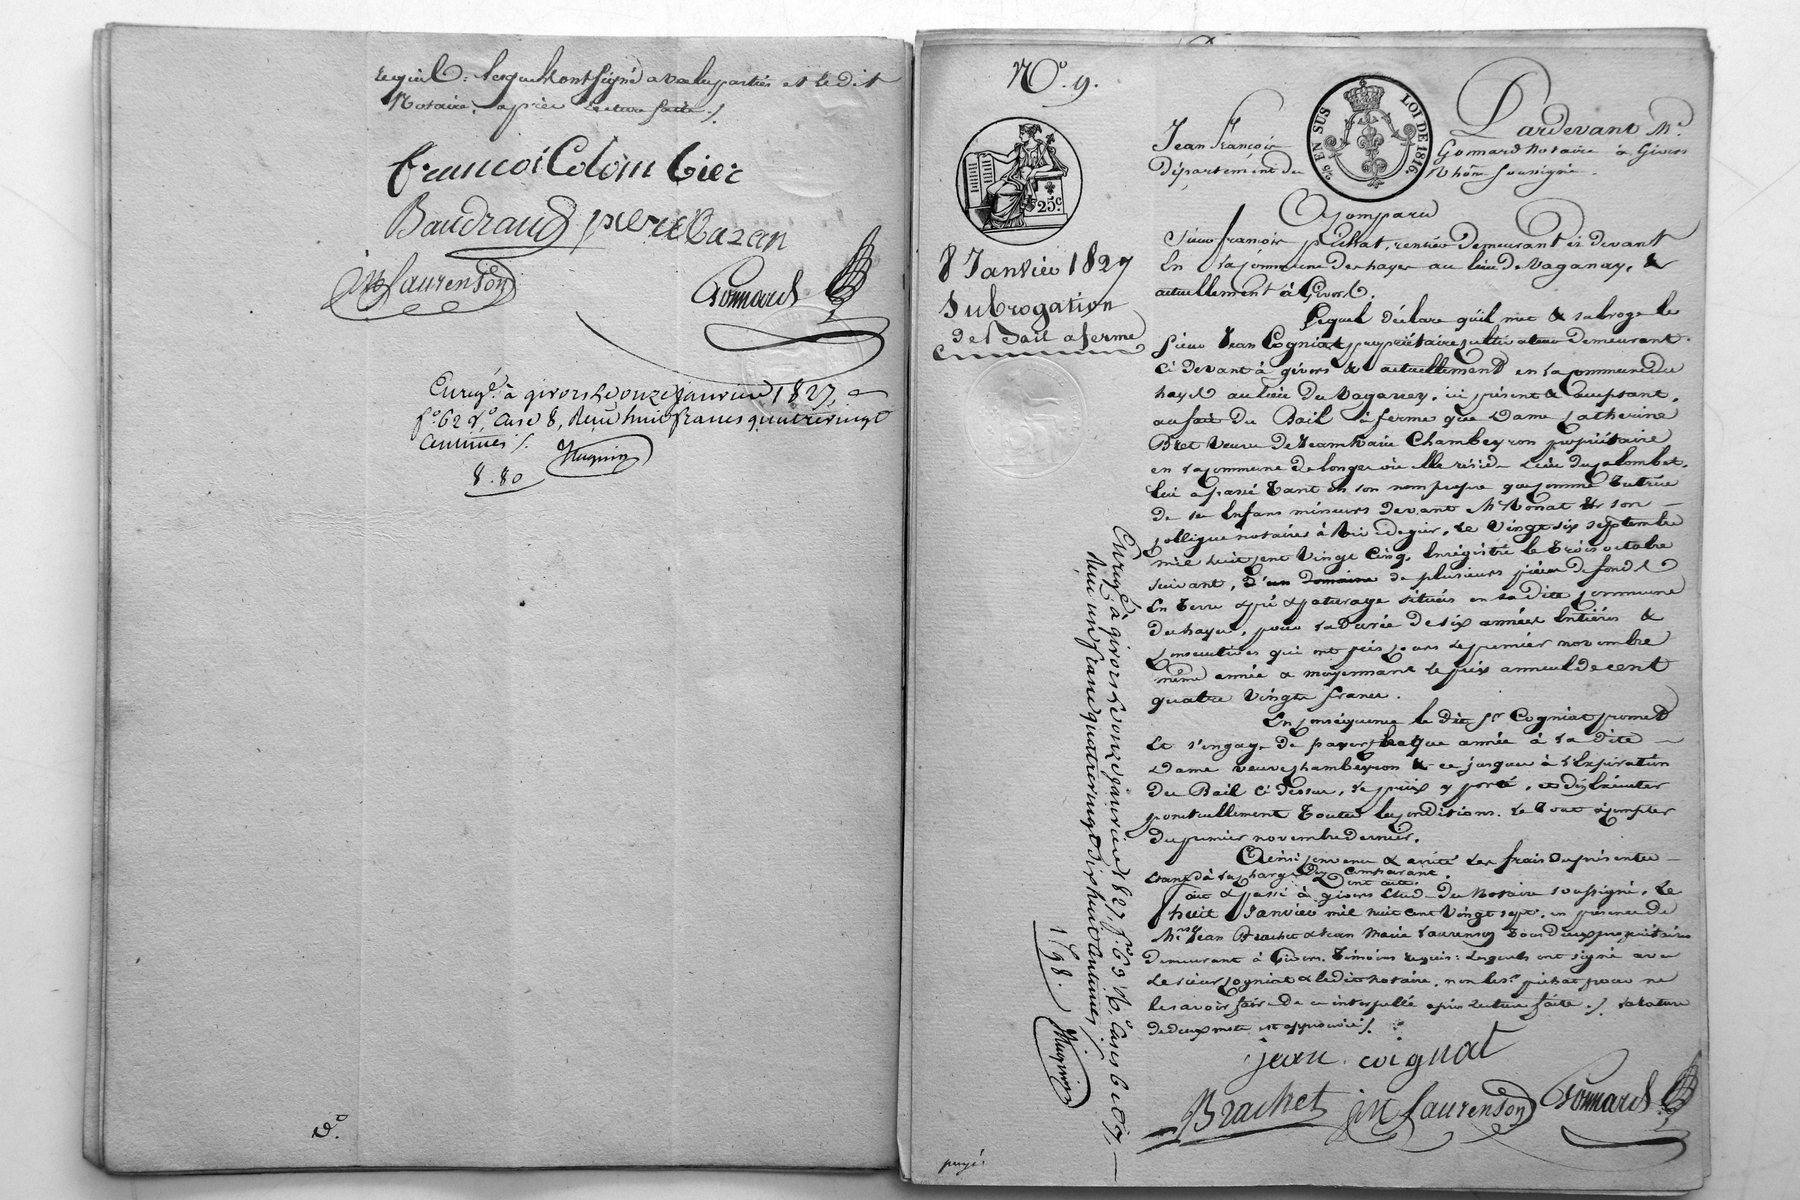 requis : lesquels ont signé avec les parties et le dit
Notaire, après lecture faite /.
francoi Colom bier
Baudrand pierre Cazan
JM Laurenson
Gonnard
Enreg.é à givors le onze janvier 1827,
f.o 62 v.o, Case 8, Reçu huit francs quatrevingt
Centimes /.
8.80 Huguin
N.o 9.
25 EN SUS
LOI DE 1816
25c
8 Janvier 1827
Subrogation
de Bail a ferme
Pardevant M.e
Jean François Gonnard Notaire à Givors
Département du Rhône soussigné.
A Comparu
Sieur françois pichat, rentier demeurant ci devant
En la commune des hayes au lieu de Vaganay, &
actuellement à Givors.
Lequel déclare qu'il met & subroge le
sieur Jean Cogniat propriétaire cultivateur demeurant
ci devant à givors & actuellement en la commune des
hayes au lieu du Vaganey, ici présent & acceptant,
au fait du Bail à ferme que Dame Catherine
Bret Veuve de Jean Marie Chambeyron propriétaire
en la commune de longes où elle réside lieu du Colombet,
lui a passé tant en son nom propre que comme Tutrice
de ses Enfans mineurs devant M.e Monat & son
collègue notaires à Rive de gier, le Vingt six septembre
mil huit cent Vingt Cinq, Enregistré le trois octobre
suivant, d'un domaine de plusieurs pièces de fonds
En terre & pré & paturage situées en la dite commune
des hayes, pour la Durée de six années Entières &
consécutives qui ont pris cours le premier novembre
même année & moyennant le prix annuel de cent
quatre Vingts francs.
En conséquence le dit s.r Cogniat promet
et s'engage de payer chaque année à la dite
Dame veuve chambeyron & ce jusques à l'Expiration
du Bail ci dessus, le prix y porté, et d'y Exécuter
ponctuellement toutes les conditions. Le tout à compter
du premier novembre dernier.
Ainsi convenu & arrêté les frais du présent
étant à la charge des comparant.
Dont acte.
fait & passé à givors Etude du Notaire soussigné, Le
huit Janvier mil huit cent Vingt sept, en présence de
M.rs Jean Brachet & Jean Marie Laurenson tous deux propriétaires
demeurant à Givors, Témoins requis : Lesquels ont signé avec
Le sieur Cogniat & le dit notaire, non le s.r pichat pour ne
le savoir faire de ce interpellé après Lecture faite. /. la rature
de deux mots est approuvée /.
jean coignat
Brachet JM Laurenson Gonnard
Enreg.é à givors le onze janvier 1827, f.o 63 R.o Cases 6 et 7,
Reçu un franc quatrevingt dix huit Centimes /.
1.98. Huguin